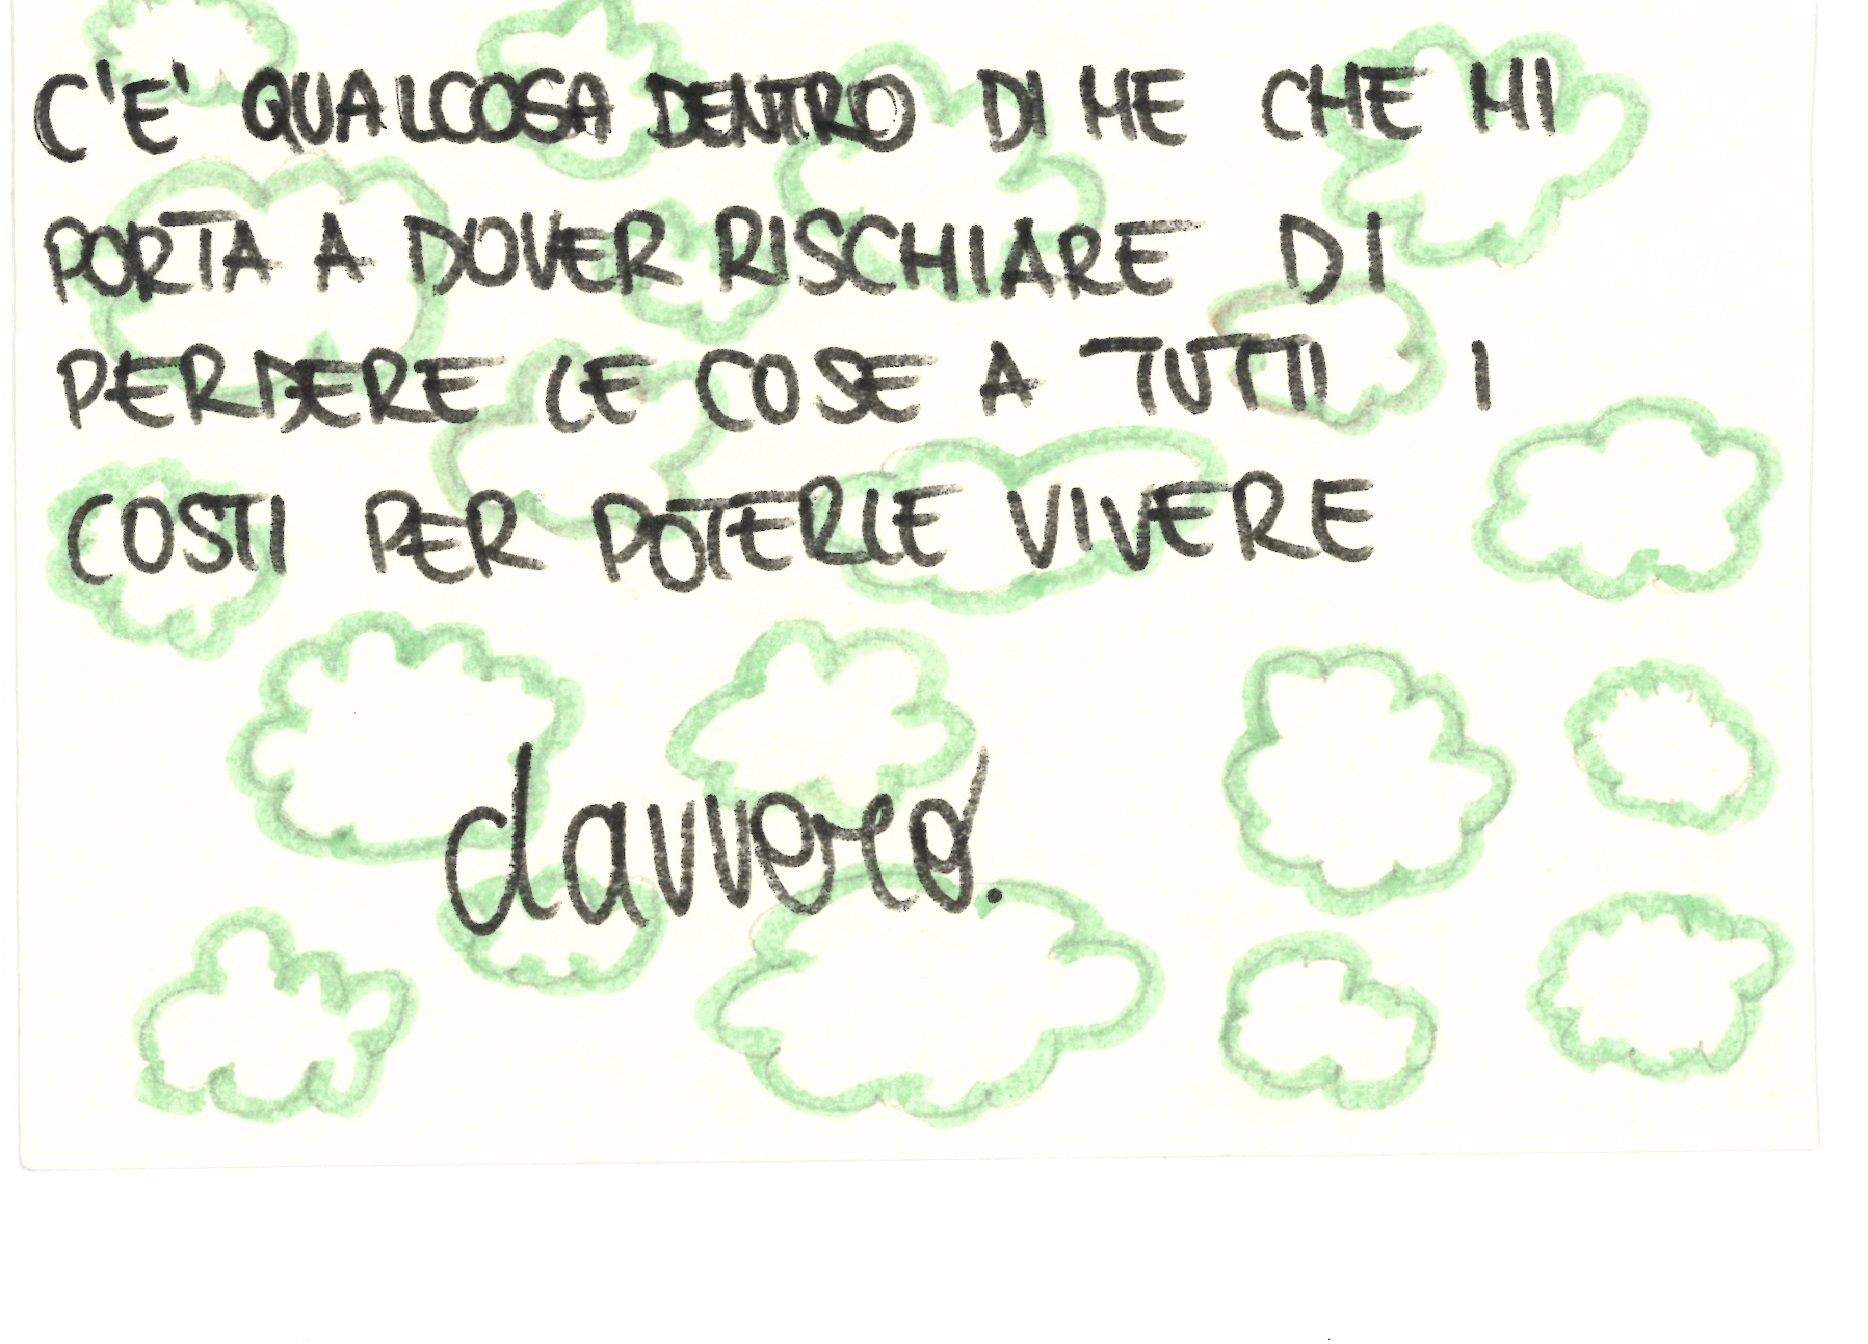 C'E' QUALCOSA DENTRO DI ME CHE MI
PORTA A DOVER RISCHIARE DI
PERDERE LE COSE A TUTTI I
COSTI PER POTERLE VIVERE
davvero.